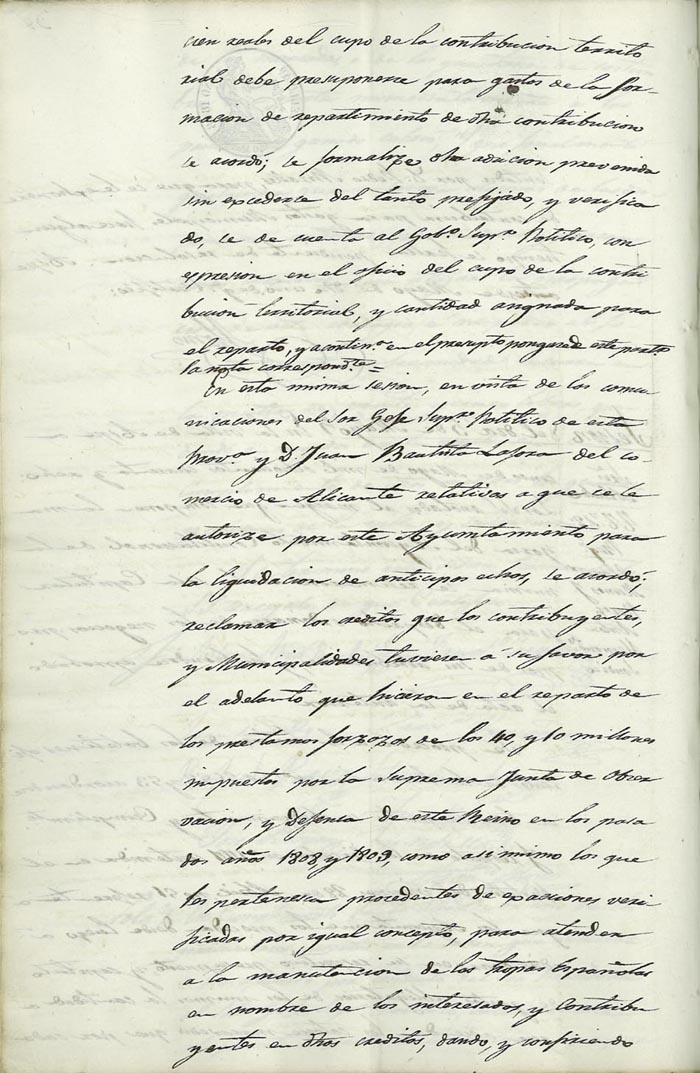 cien reales del cupo de la contribucion territo
rial debe presuponerse para gastos de la for-
macion de repartimiento de dha contribucion
se acordó; se formalize dha adicion prevenida
sin excederse del tanto prefijado, y verifica
do, se de cuenta al Gobº Supr.º Politico, con
expresion en el oficio del cupo de la contri
bucion territorial, y cantidad asignada para
el reparto, y acontin.n en el presupto pongase de este part.r
la nota correspond.te =
En esta misma sesion, en vista de las comu
nicaciones del Sor Gefe Supr.º Politico de esta
Prov.a y D. Juan Bautista Lafora del co-
mercio de Alicante relativas a que se le
autorize por este Ayuntamiento para
la liquidacion de anticipos echos, se acordó;
reclamar los creditos que los contribuyentes,
y Municipalidades tuviesen a su favor por
el adelanto que hicieron en el reparto de
los prestamos forzozos de los 40, y 10 millones
impuestos por la Suprema Junta de Obser
vacion, y Defensa de este Reino en los pasa
dos años 1808, y 1809, como asimimo los que
les pertenescan procedentes de exaciones veri
ficadas por igual concepto, para atender
a la manutencion de las tropas Españolas
en nombre de los interesados, y Contribu
yentes en dhos creditos, dando, y confiriendo